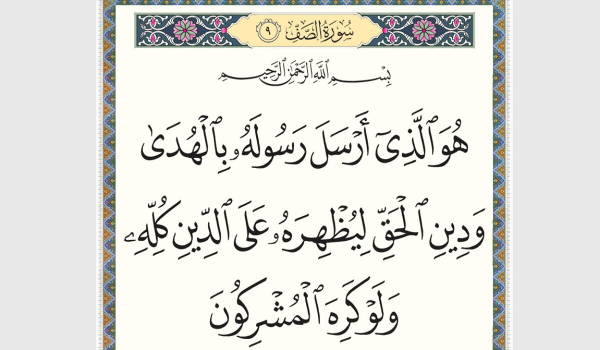 سُورَةُ الصَّفِّ ٩
بِسْمِ ٱللَّهِ ٱلرَّحْمَٰنِ ٱلرَّحِيمِ
هُوَ ٱلَّذِىٓ أَرْسَلَ رَسُولَهُۥ بِٱلْهُدَىٰ
وَدِينِ ٱلْحَقِّ لِيُظْهِرَهُۥ عَلَى ٱلدِّينِ كُلِّهِۦ
وَلَوْ كَرِهَ ٱلْمُشْرِكُونَ